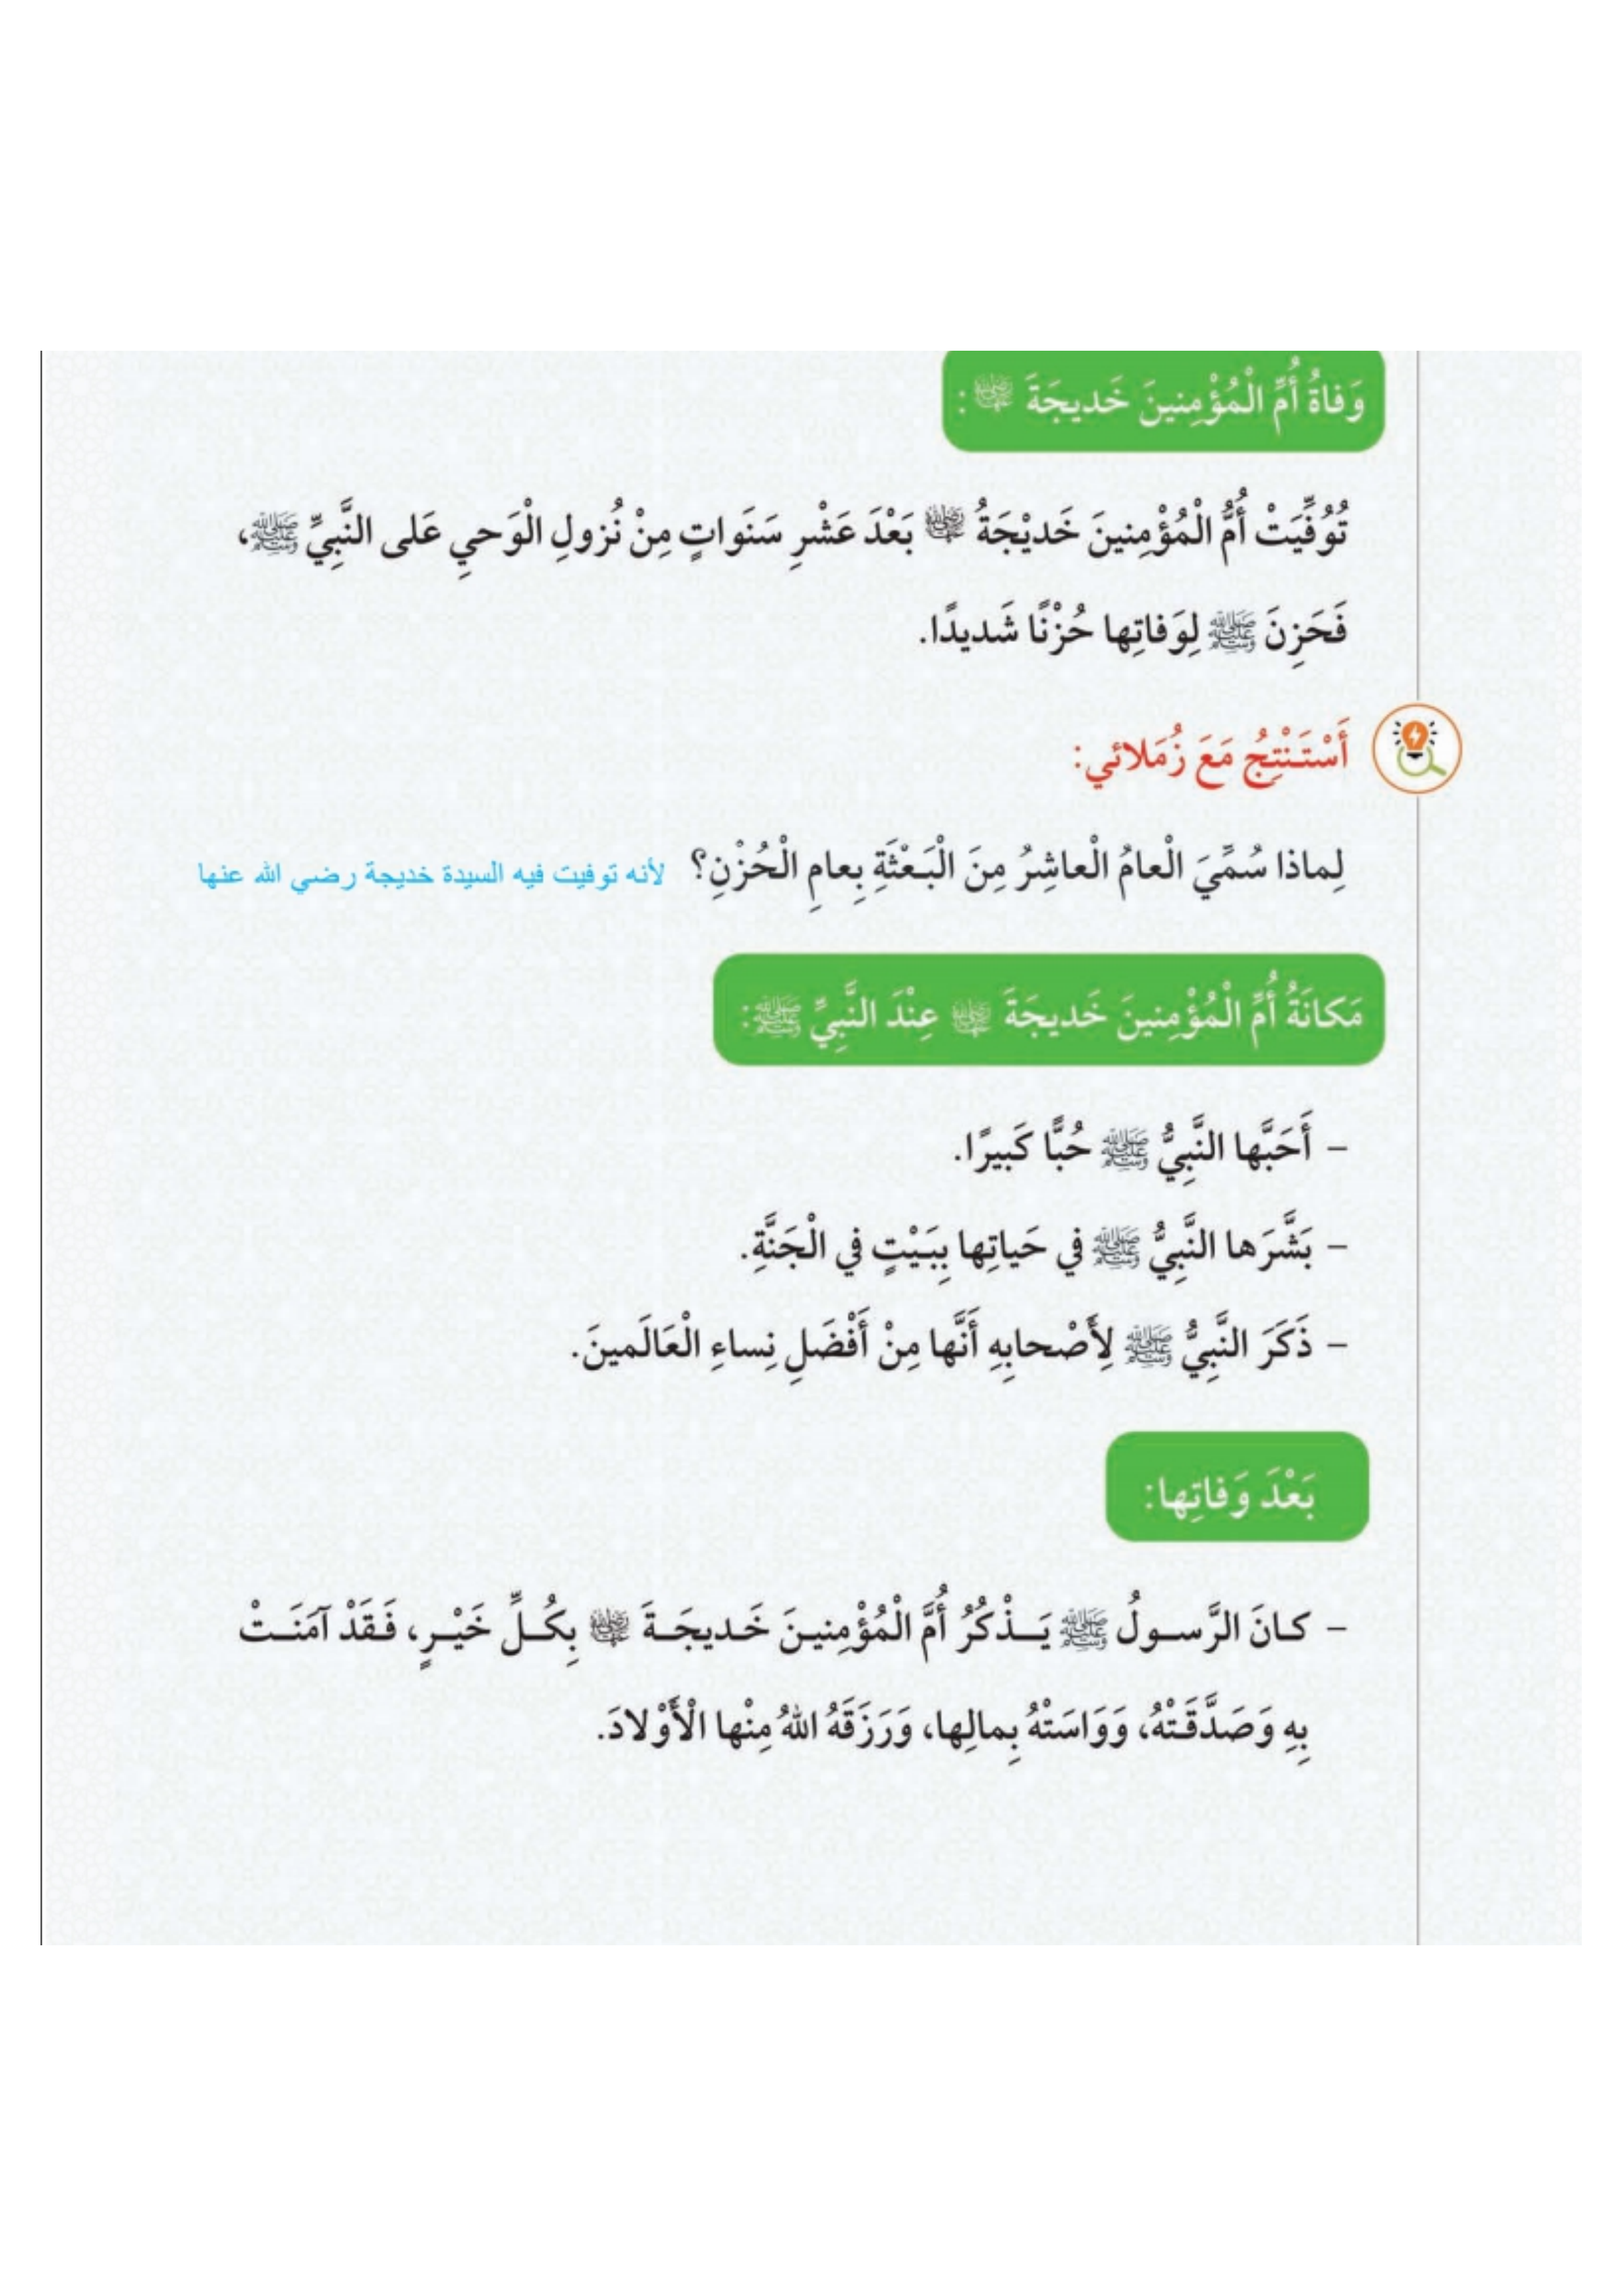 وَفاةُ أُمِّ الْمُؤْمِنينَ خَديجَةَ رضي الله عنها:
تُوُفِّيَتْ أُمُّ الْمُؤْمِنينَ خَديْجَةُ رضي الله عنها بَعْدَ عَشْرِ سَنَواتٍ مِنْ نُزولِ الْوَحيِ عَلى النَّبِيِّ ﷺ،
فَحَزِنَ ﷺ لِوَفاتِها حُزْنًا شَديدًا.
أَسْتَـنْتِجُ مَعَ زُمَلائي:
لِماذا سُمِّيَ الْعامُ الْعاشِرُ مِنَ الْبَـعْثَةِ بِعامِ الْحُزْنِ؟ لأنه توفيت فيه السيدة خديجة رضي الله عنها
مَكانَةُ أُمِّ الْمُؤْمِنينَ خَديجَةَ رضي الله عنها عِنْدَ النَّبِيِّ ﷺ:
– أَحَبَّها النَّبِيُّ ﷺ حُبًّا كَبيرًا.
– بَشَّرَها النَّبِيُّ ﷺ في حَياتِها بِبَـيْتٍ في الْجَنَّةِ.
– ذَكَرَ النَّبِيُّ ﷺ لِأَصْحابِهِ أَنَّها مِنْ أَفْضَلِ نِساءِ الْعَالَمينَ.
بَعْدَ وَفاتِها:
– كـانَ الرَّسـولُ ﷺ يَـذْكُرُ أُمَّ الْمُؤْمِنيـنَ خَـديجَـةَ رضي الله عنها بِكُـلِّ خَيْـرٍ، فَـقَدْ آمَنَـتْ
بِهِ وَصَدَّقَـتْهُ، وَوَاسَتْهُ بِمالِها، وَرَزَقَهُ اللهُ مِنْها الْأَوْلادَ.